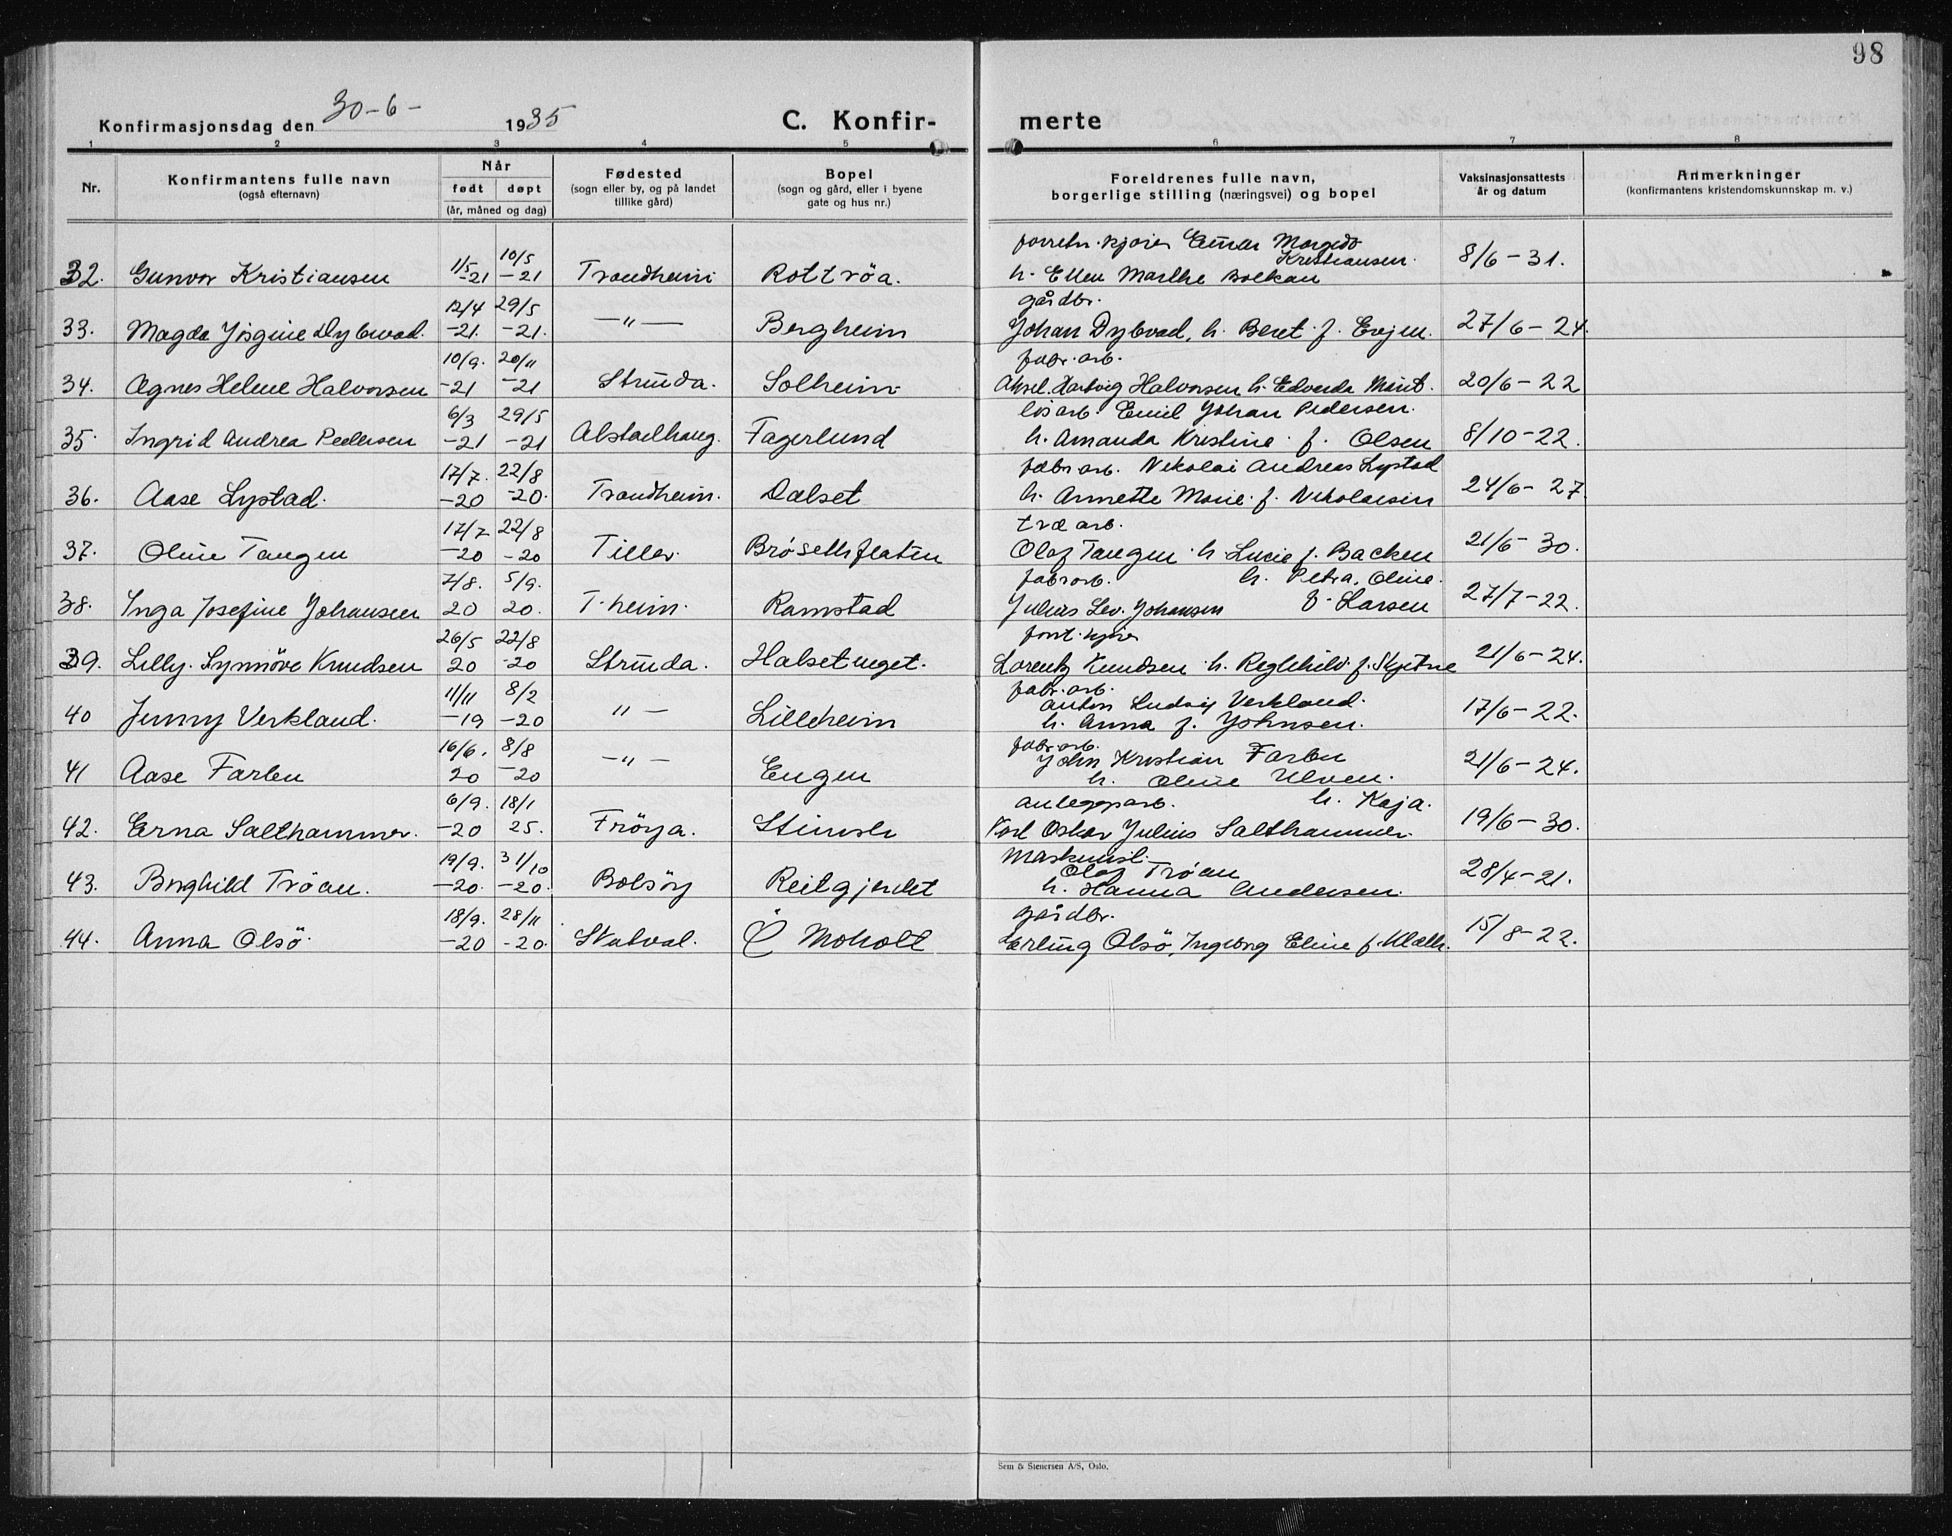 98
Konfirmasjonsdag den 30-6- 1935 C. Konfir- merte
1 2 3 4 5 6 7 8
Nr. Konfirmantens fulle navn (også efternavn) Når født døpt (år, måned og dag) Fødested (sogn eller by, og på landet tillike gård) Bopel (sogn og gård, eller i byene gate og hus nr.) Foreldrenes fulle navn, borgerlige stilling (næringsvei) og bopel Vaksinasjonsattests år og datum Anmerkninger (konfirmantens kristendomskunnskap m. v.)
1/5 10/5 Einar
32. Gunvor Kristiansen -21 -21 Trondheim Rottrøa. Kristiansen. h. Ellen Marthe Bolkan 8/6-31.
12/4 29/5 gårdbr.
33. Magda Dybvad. -21. -21. -"- Bergheim Johan Dybvad, h. Beret f. Evjen. 27/6-24.
10/9. 20/11 fabr. arb.
34. Agnes Helene Halvorsen -21 -21 Strinda. Solheim Aksel Hartvig Halvorsen h. Edvarda 20/6-22
6/3 29/5 løsarb. Emil Johan Pedersen.
35. Ingrid Andrea Pedersen -21 -21 Alstadhaug. Fagerlund h. Amanda Kristine f. Olsen 8/10-22.
17/7. 22/8 fabr arb. Nikolai Andreas Lystad
36. Aase Lystad. -20 -20. Trondheim. Dalset h. Annette Marie f. Nikolaisen 24/6-27.
17/7 22/8 træ arb.
37. Oline Tangen -20 -20 Tiller. Brøsethflaten Olaf Tangen h. Lucie f. Backen 21/6-30.
7/8. 5/9. fabr arb. h. Petra, Oline.
38. Inga Josefine Johansen 20 20. T.heim. Ramstad Julius Johansen f. Larsen 27/7-22.
26/5 22/8
39. Lilly. Synnöve Knudsen 20 -20 Strinda. Lorentz Knudsen h. f. Skjetne 21/6-24.
11/11 8/2 fabr. arb. Anton Ludvig Verkland.
40 Jenny Verkland. -19 -20 "- Lilleheim h. Anna f. Johnsen. 17/6-22.
16/6. 8/8 fabr arb. John Kristian Farbu
41 Aase Farbu 20 -20 -"- Engen h. Oline Ulven. 21/6-24.
6/9. 18/1 anleggsarb. h. Kaja.
42. Erna Salthammer. -20 25. Fröya. Karl Oskar Julius Salthammer. 19/6-30.
19/9. 31/10 Olaf Trøan
43. Borghild Tröan. -20. -20. Bolsöy Reitgjerdet h. Hanna Andersen. 28/4-21.
18/9. 28/11 gårdbr.
44. Anna Olsö. -20 -20. Skatval. Ø Moholt Erling Olsö, Ingeborg Eline f. 15/8-22.
Sem & Stenersen A/S, Oslo.